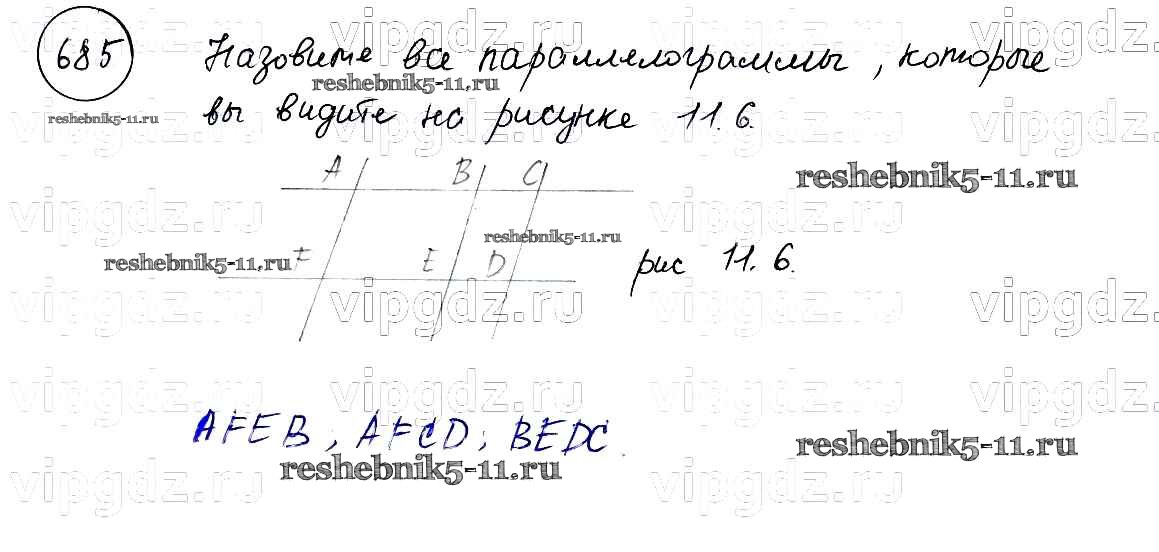 685 Назовите все параллелограммы, которые
вы видите на рисунке 11.6.
A B C
F E D
рис 11.6.
AFEB, AFCD, BEDC.
reshebnik5-11.ru
reshebnik5-11.ru
reshebnik5-11.ru
reshebnik5-11.ru
reshebnik5-11.ru
reshebnik5-11.ru
reshebnik5-11.ru
vipgdz.ru vipgdz.ru vipgdz.ru vipgdz.ru
vipgdz.ru vipgdz.ru vipgdz.ru vipgdz.ru
vipgdz.ru vipgdz.ru vipgdz.ru vipgdz.ru
vipgdz.ru vipgdz.ru vipgdz.ru vipgdz.ru
vipgdz.ru vipgdz.ru vipgdz.ru vipgdz.ru
vipgdz.ru vipgdz.ru